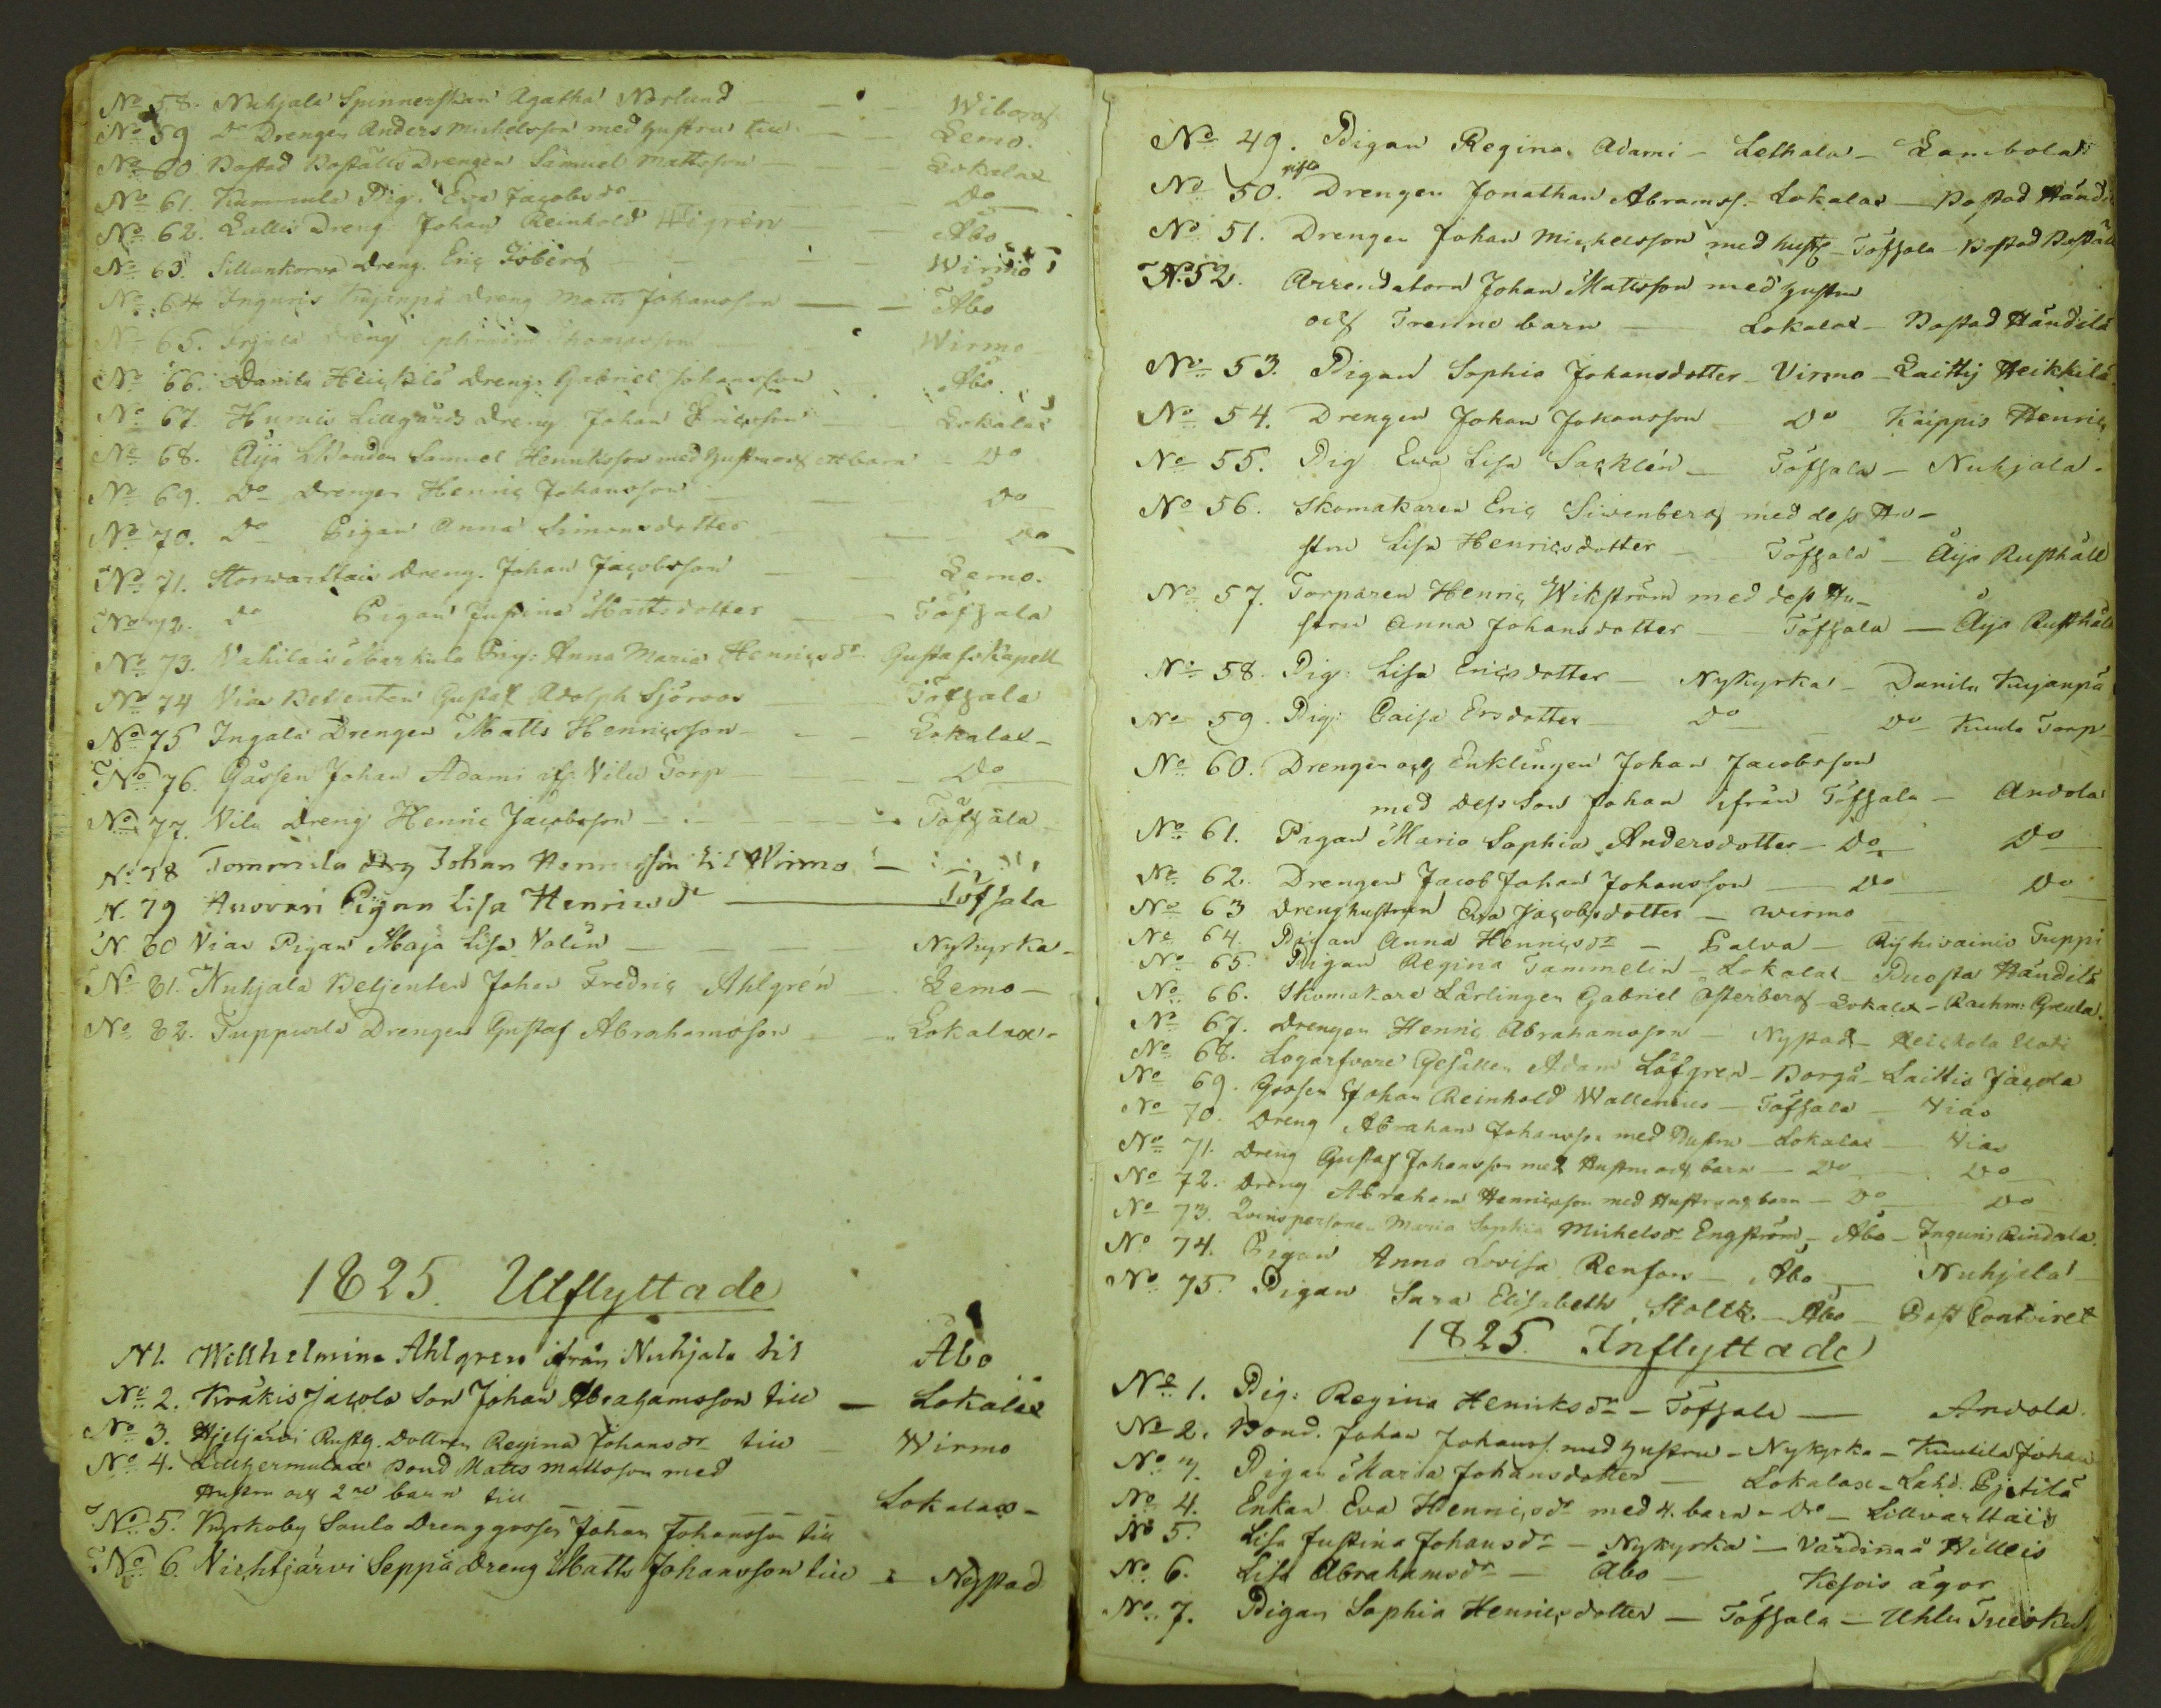 No 58. Nuhjala Spinnerskan Agatha Norlund — Wiborg
No 59 Do Drengen Anders Michelsson med hustru till — Lemo.
No 60 Bastad Boställs Drengen Samuel Mattsson — Lokalax
No 61. Kammela Pig. Eva Jacobsdr — Do
No 62. Lallis Dreng Johan Reinhold Wigrén — Åbo
No 63. Sillankorva Dreng. Eric Isberg — Wirmo
No 64 Inguris Kujanpä Dreng Matts Johansson — Åbo
No 65. Dreng Ephraim Thomasson — Wirmo
No 66. Danila Heickilä Dreng. Gabriel Johansson — Åbo
No 67. Humais Lillgårds Dreng Johan Ericsson — Lokalax
No 68. Äijä Bonden Samuel Henriksson med hustru och barn — Do
No 69. Do Drengen Henric Johansson — Do
No 70. Do Pigan Anna Simonsdotter — Do
No 71. Storvarttais Dreng. Johan Jacobsson — Lemo.
No 72. Do Pigan Justina Mattsdotter — Töfsala
No 73. Vahilais Markula Pig: Anna Maria Henricsdr Gustafs Kapell
No 74 Vias Betjenten Gustaf Adolph Sjöroos Töfsala
No 75 Ingala Drengen Matts Henricsson — Lokalax —
No 76. Gåssen Johan Adami ifr. Vilu Torp — Do
No 77. Vilu Dreng Henric Jacobsson — Töfsala
No 78 Tommila drg Johan Henricsson til Wirmo —
N. 79 Ausvari Pigan Lisa Henricsdr — Töfsala
N 80 Vias Pigan Maja Lisa Valin — Nykyrka —
No 81. Nuhjala Betjenten Johan Fredric Ahlgrén — Lemo —
No 82. Tuppurla Drengen Gustaf Abrahamsson — Lokalax —
1825. Utflyttade
N1. Willhelmina Ahlgren ifrån Nuhjala til Åbo
No 2. Kråkis Jacola Son Johan Abrahamsson till — Lokalax
No 3. Hjeljärvi Rusth. Dottren Regina Johansdr till — Wirmo
No 4. Bond Matts Mattsson med
Hustru och 2ne barn till — Lokalax —
No 5. Kyrkoby Saula Drenggossen Johan Johansson till
No 6. Vichtjärvi Seppä Dreng Matts Johansson till — Nystad
No 49. Pigan Regina Adami — Letkala — Lambola
No 50. gifta Drengen Jonathan Abramss. — Lokalax — Bastad Händ
No 51. Drengen Johan Michelsson med hust — Töfsala — Bastad Boställ
No 52. Arrendatorn Johan Mattsson med hustru
och Trenne barn — Lokalax — Bastad Händilä
No 53. Pigan Sophia Johansdotter — Virmo — Laittij Heikkilä
No 54. Drengen Johan Johansson Do Kaippis Henric
No 55. Pig Eva Lisa Sacklén — Töfsala — Nuhjala.
No 56. Skomakaren Eric Sivenberg med dess Hu-
stru Lisa Henricsdotter — Töfsala — Äijä Rusthåll
No 57. Torparen Henric Wikström med dess Hu-
stru Anna Johansdotter — Töfsala — Äijä Rusthåll
No 58. Pig: Lisa Ericsdotter — Nykyrka — Danila Kujanpä
No 59. Pig: Caisa Ersdotter — Do — Do Kuula Torp
No 60. Drengen och Enklingen Johan Jacobsson
med dess Son Johan ifrån Töfsala — Andola
No 61. Pigan Maria Sophia Andersdotter — Do — Do
No 62. Drengen Jacob Johan Johansson — Do — Do
No 63 Drenghustrun Eva Jacobsdotter — Wirmo
No 64. Pigan Anna Henricsdr — Halva — Rijhivainio Tuppi
No 65. Pigan Regina Tammelin — Lokalax — Puosta Händilä
No 66. Skomakare Lärlingen Gabriel Österberg — Lokalax — Raehm: Greula.
No 67. Drengen Henric Abrahamsson — Nystad —
No 68. Logarfvare Gesällen Adam Löfgren — Borgå — Laittis Jacola
No 69. Gossen Johan Reinhold Wallenius — Töfsala — Vias
No 70. Dreng Abraham Johansson med Hustru — Lokalax — Vias
No 71. Dreng Gustaf Johansson med Hustru och barn — Do — Do
No 72. Dreng Abraham Henricsson med Hustru och barn — Do — Do
No 73. Qvinspersonen Maria Sophia Michelsdr Engström — Åbo — Inguris Rindala.
No 74. Pigan Anna Lovisa Renfors — Åbo — Nuhjala —
No 75. Pigan Sara Elisabeth Stoltz — Åbo — Post Contoiret
1825 Inflyttade
No 1. Pig: Regina Henriksdr — Töfsala — Andola.
No 2. Bond. Johan Johanss. med hustru — Nykyrka — Kuutila Johan
No 3. Pigan Maria Johansdotter — Lokalax — Lahd. Pjetilä
No 4. Enkan Eva Henricsdr med 4. barn — Do — Lillvarttais
No 5. Lisa Justina Johansdr — Nykyrka — Värdinnä Willeis
No 6. Lisa Abrahamsdr — Åbo — Kesois ägor
No 7. Pigan Sophia Henricsdotter — Töfsala — Uhlu